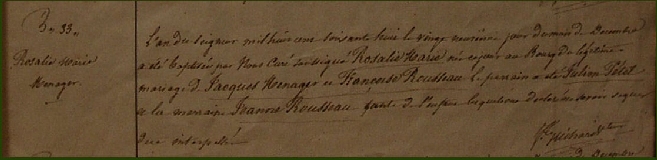 B. 33.
Rosalie Marie
Menager.
L'an du seigneur mil huit cent soixante huit le vingt neuvième jour du mois de Decembre
a été baptisée par Nous Curé soussigné Rosalie Marie née ce jour au Bourg du légitime
mariage de Jacques Menager et Françoise Rousseau. Le parrain a été Julien
et la marraine Jeanne Rousseau tante de l'enfant lesquels ont déclaré ne savoir signer
de ce interpellé
Decembre